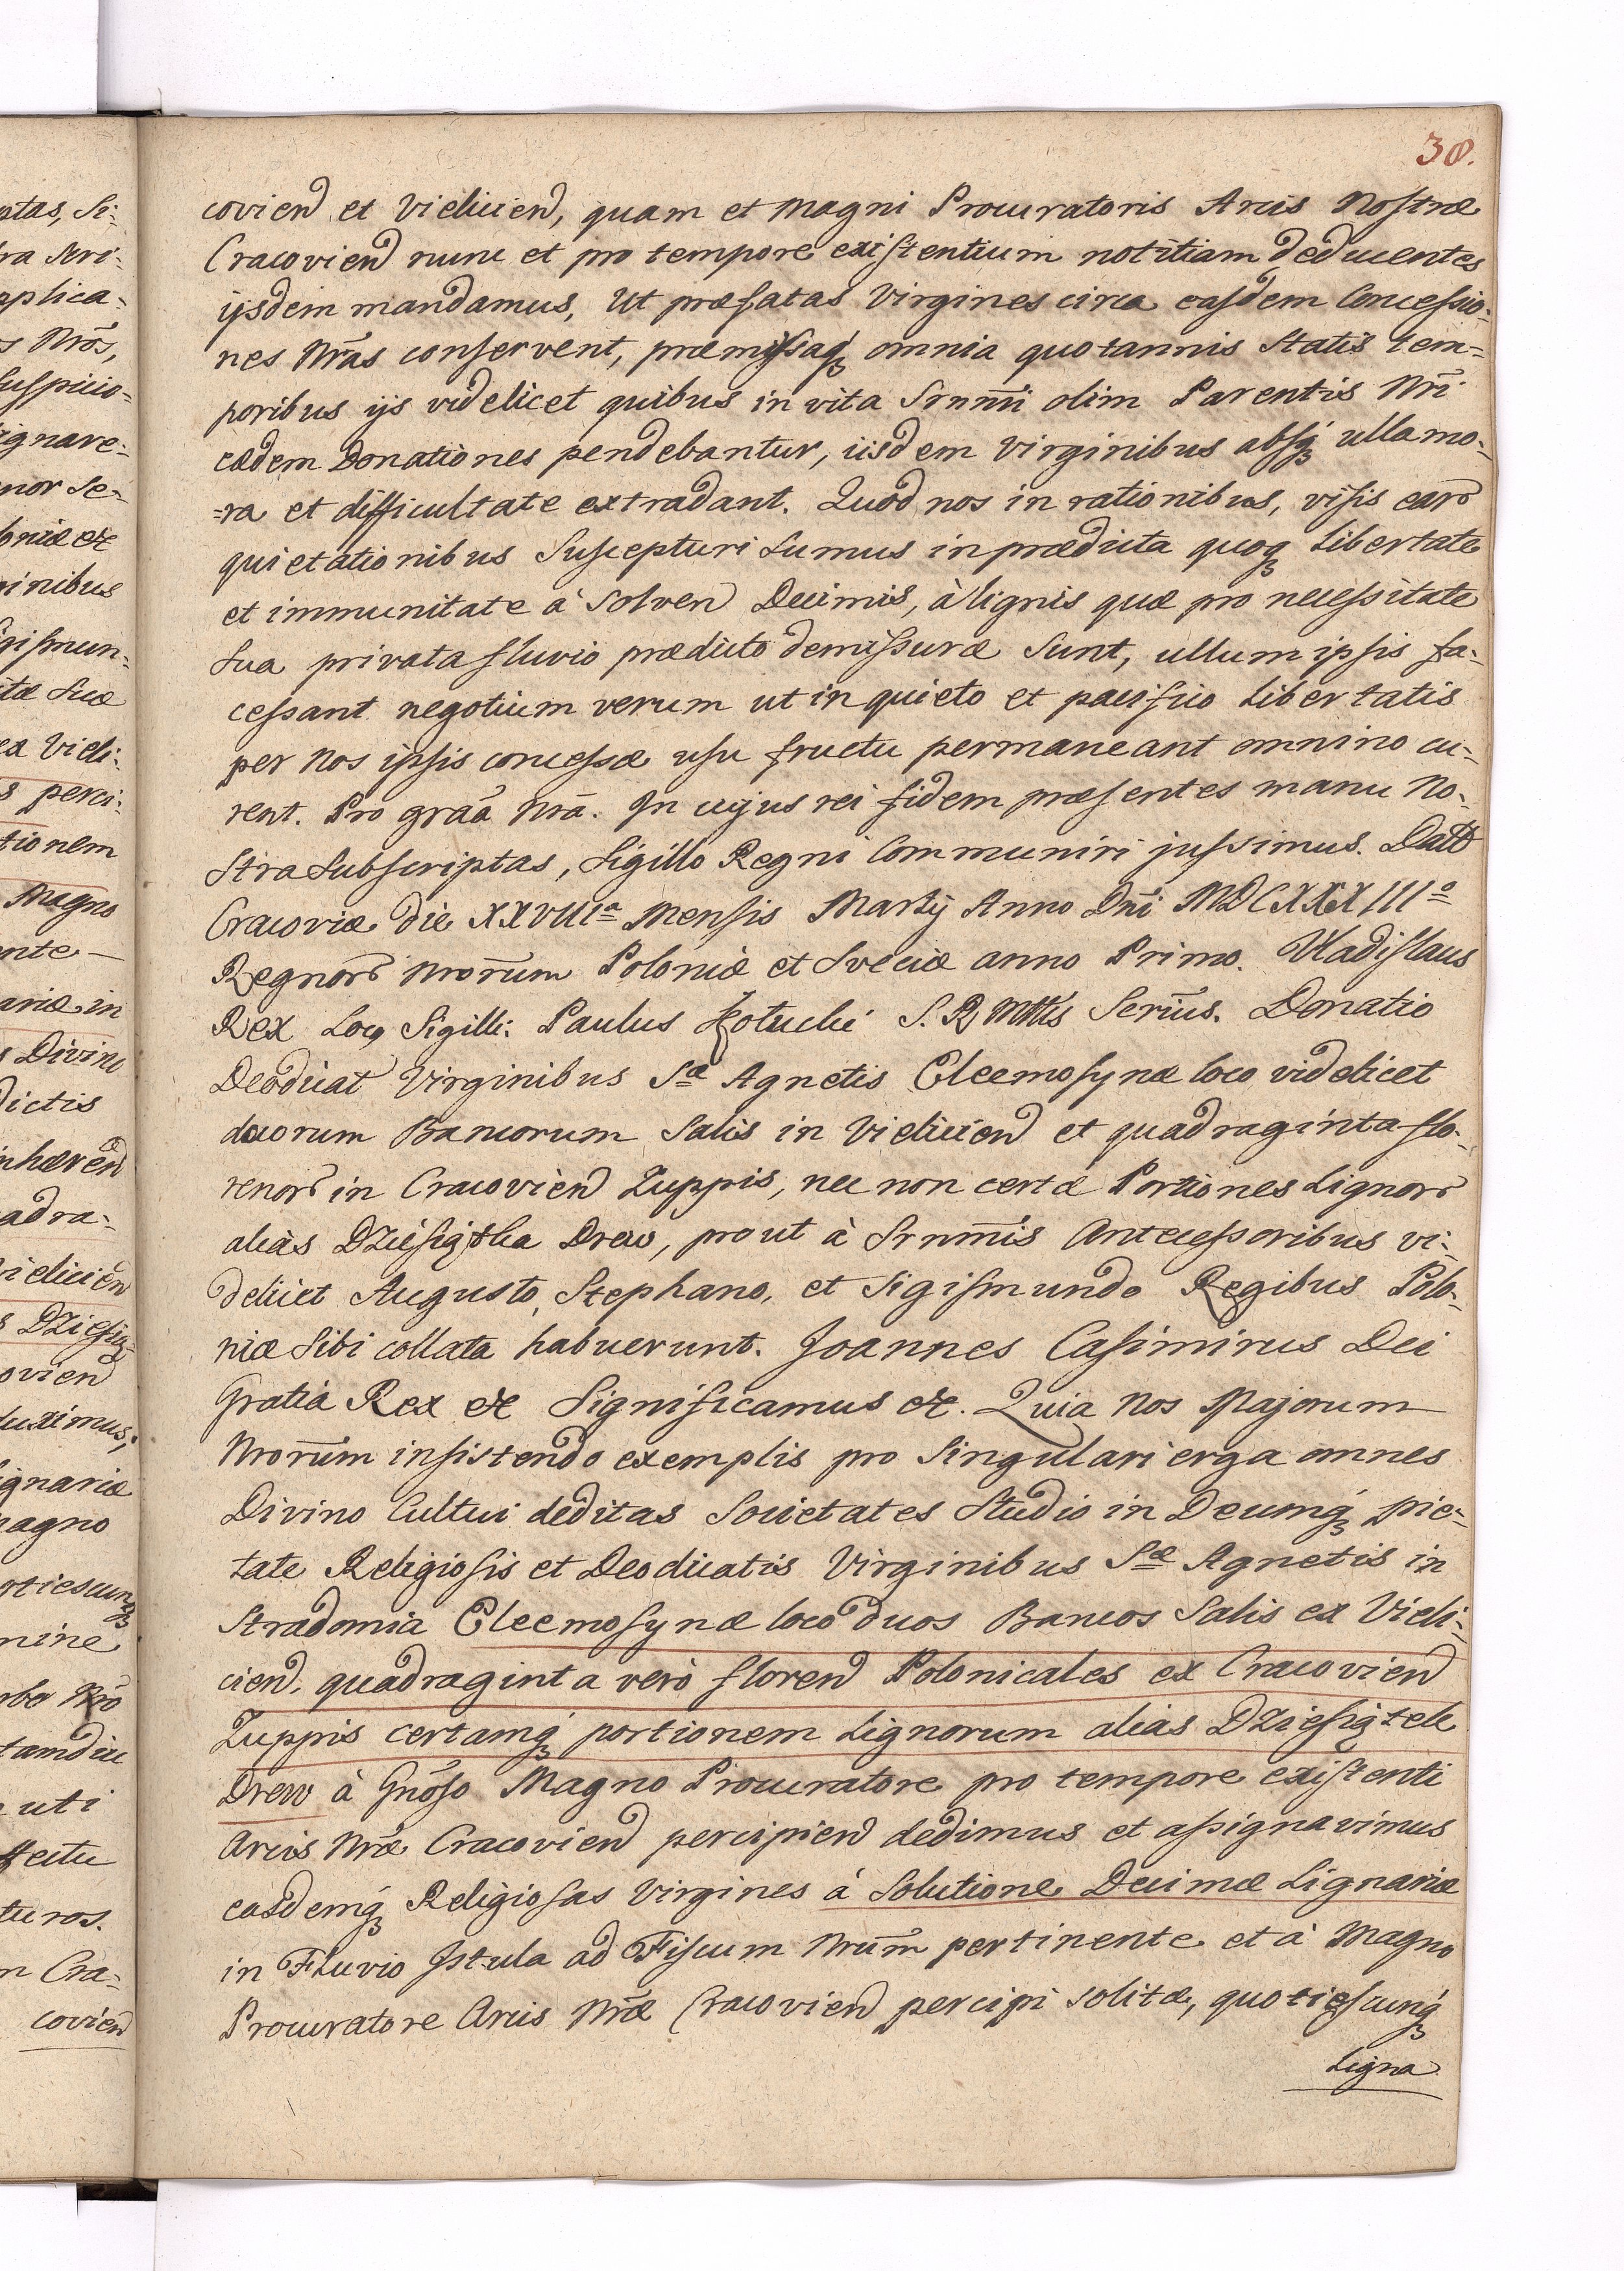 38.
covien et Vielicien, quam et Magni Procuratoris Arcis Nostræ
Cracovien nunc et pro tempore existentium notitiam deducentes
ijsdem mandamus, Ut præfatas Virgines circa easdem Concessio-
nes Nr̄as conservent, præmissaq́ʒ omnia quotannis statis tem=
poribus ijs videlicet quibus in vita Srnm̄i olim Parentis Nr̄i
eædem Donationes pendebantur, iisdem Virginibus absq́ʒ ulla mo-
=ra et difficultate extradant. Quod nos in rationibus, visis ear
quietationibus Suscepturi Sumus in prædicta quoqʒ Libertate
et immunitate à Solven Decimis, à lignis quæ pro necessitate
Sua privata fluvio prædicto demissuræ Sunt, ullum ipsis fa-
cessant negotium verum ut in quieto et pacifico Libertatis
per Nos ipsis concessæ usu fructu permaneant omnino cu-
rent. Pro grāā Nr̄ā. In cujus rei fidem præsentes manu No-
stra Subscriptas, Sigillo Regni Communiri jussimus. Datt
Cracoviæ die XXVIIIa Mensis Martij Anno Dn̄i MDCXXXIIIo
Regnor Nr̄orum Poloniæ et Sveciæ anno Primo. Vladislaus
Rex Locq Sigilli: Paulus S. R Mttis Serīus. Donatio
Deodicat Virginibus Sæ Agnetis Eleemosynæ loco videlicet
duorum Bancorum Salis in Vieliciend et quadraginta flo-
renor in Cracovien Zuppis, nec non certæ Portiones Lignor
aliàs Dziesiątka Drew, prout à Srnm̄is Antecessoribus vi-
delicet Augusto, Stephano, et Sigismundo Regibus Polo-
niæ Sibi collata habuerunt. Joannes Casimirus Dei
Gratia Rex &c Significamus &c. Quia Nos Majorum
Nr̄orum insistendo exemplis pro Singulari erga omnes
Divino Cultui deditas Societates Studio in Deumq́ʒ pie-
tate Religiosis et Deodicatis Virginibus Sæ Agnetis in
Stradomia Eleemosynæ loco duos Bancos Salis ex Vieli-
cien, quadraginta verò floren Polonicales ex Cracovien
Zuppis certamq́ʒ portionem Lignorum alias Dziesiątek
Drew à Gnōso Magno Procuratore pro tempore existenti
Arcis Nr̄æ Cracovien percipien dedimus et assignavimus
easdemq́ʒ Religiosas Virgines à Solutione Decimæ Lignariæ
in Fluvio Istula ad Fiscum Nr̄um pertinente et à Magno
Procuratore Arcis Nr̄æ Cracovien percipi solitæ, quotiescunq́ʒ
Ligna